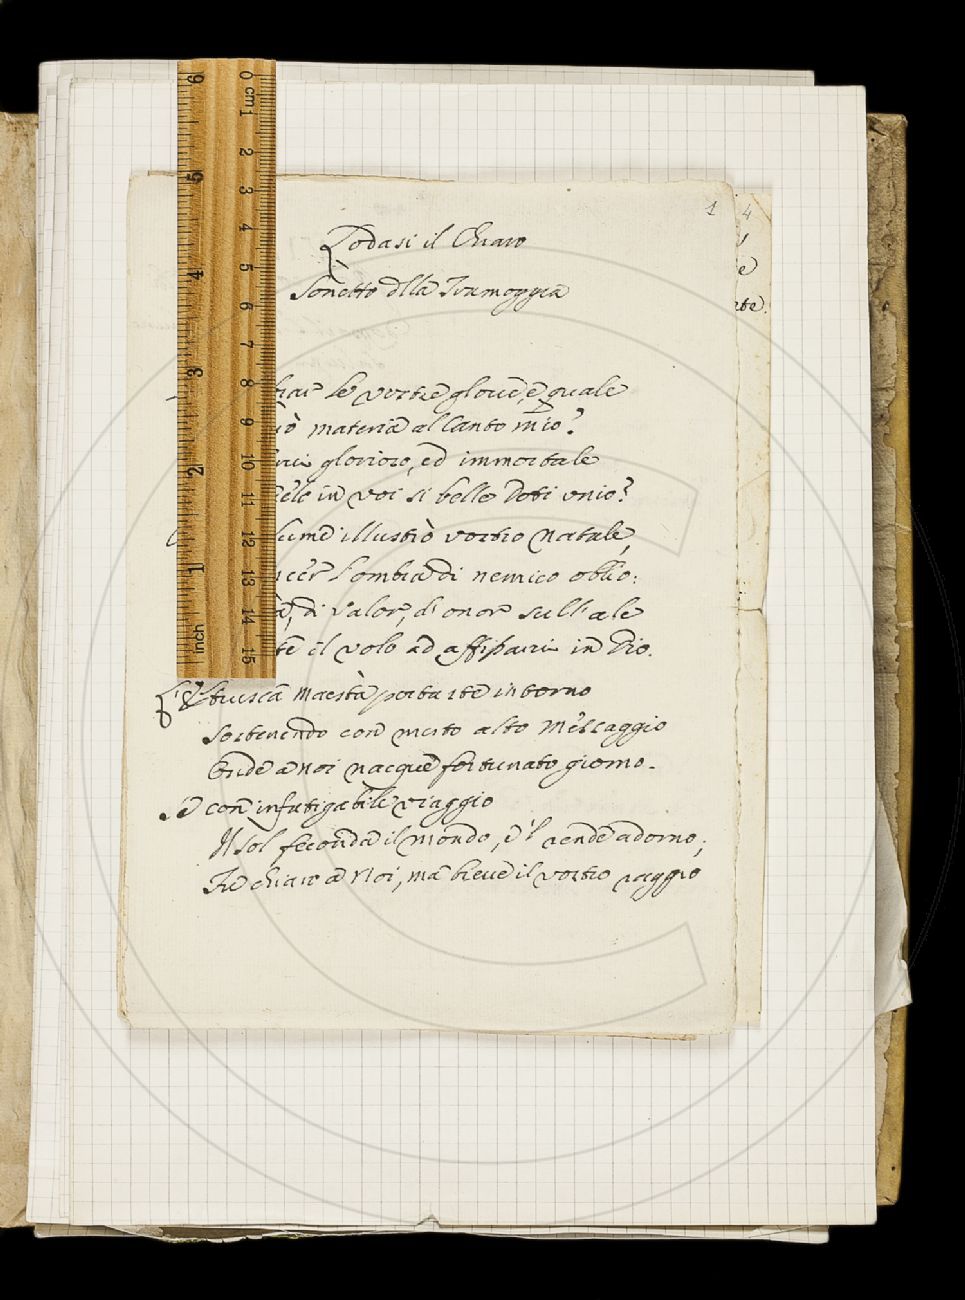 1 4
Lodasi il Chiaro
Sonetto della Tramoggia
le vostre glorie, e quale
materia al Canto mio?
glorioso, ed immortale
in voi si belle Doti unio?
illustrò vostro Natale,
l'ombra di nemico oblio:
di Valor, d'onor sull'ale
il volo ad affissarvi in Dio.
L'Etrusca Maestà portaste intorno
Sostenendo con merto alto Messaggio
Onde a noi nacque fortunato giorno.
Se con infatigabile viaggio
Il Sol feconda il mondo, e 'l rende adorno;
Fu chiaro a Noi, ma breve il vostro raggio
0 cm 1 2 3 4 5 6 7 8 9 10 11 12 13 14 15
inch 1 2 3 4 5 6